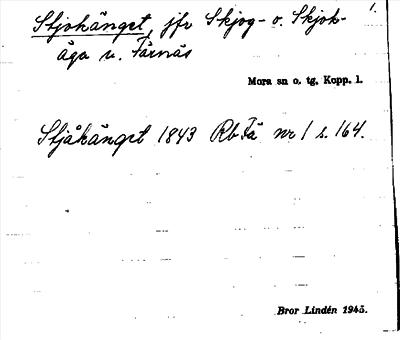 Stjohänget, jfr Skjog- o. Skjok-
1.
åga u. Färnäs
Mora sn o. tg, Kopp. l.
Stjåhänget 1843 Rb Fä nr 1 s. 164.
Bror Lindén 1945.